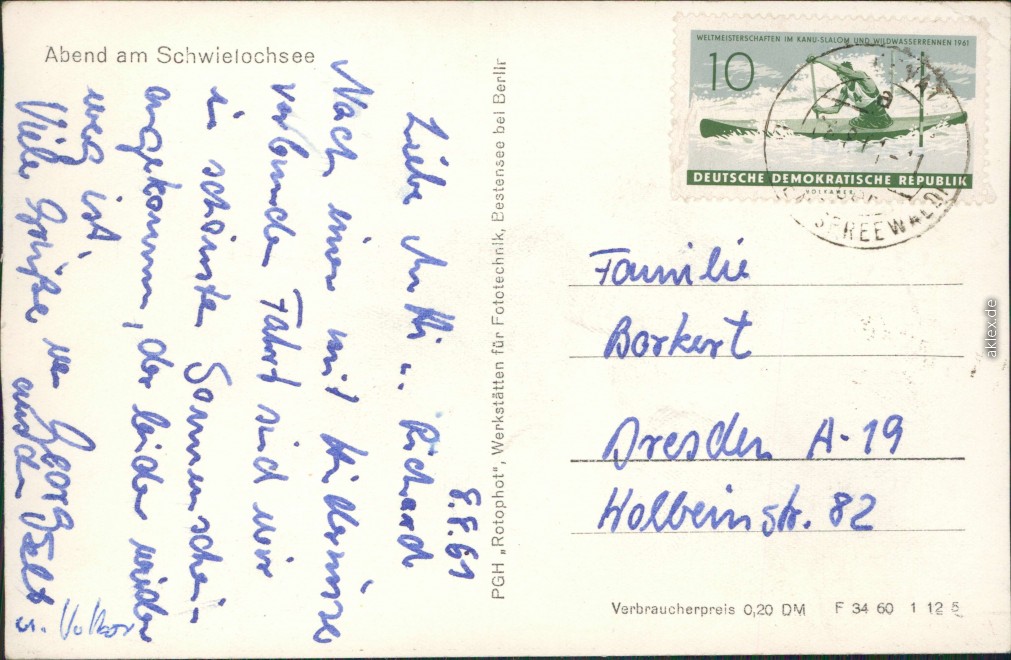 Abend am Schwielochsee
8.8.61
Liebe Ruth u. Richard
Nach einer mit Hindernisse
verbunden Fahrt sind wir
in schönsten Sonnenschein
angekommen, der leider wieder
weg ist
Viele Grüße von Georg
u. Volker
PGH „Rotophot“, Werkstätten für Fototechnik, Bestensee bei Berlin
WELTMEISTERSCHAFTEN IM KANU-SLALOM UND WILDWASSERRENNEN 1961
10
DEUTSCHE DEMOKRATISCHE REPUBLIK
VOLKAMER
SPREEWALD
Familie
Borkert
Dresden A-19
Holbeinstr. 82
Verbraucherpreis 0,20 DM F 34 60 1 12 5
aklex.de